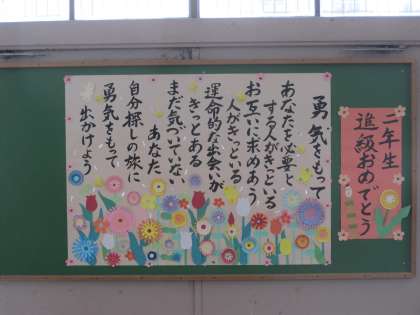 勇気をもって
あなたを必要と
する人がきっといる
お互いに求めあう
人がきっといる
運命的な出会いが
きっとある
まだ気づいていない
あなた
自分探しの旅に
勇気をもって
出かけよう
二年生
進級おめでとう